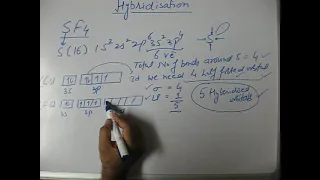 Hybridisation
SF4
S(16) 1s² 2s² 2p⁶ 3s² 3p⁴
6 ve
Total No of bonds around S = 4
3d we need 4 half filled orbital
3s 3p
σ = 4
lp = 1
5
5 Hybridised
3s 3p